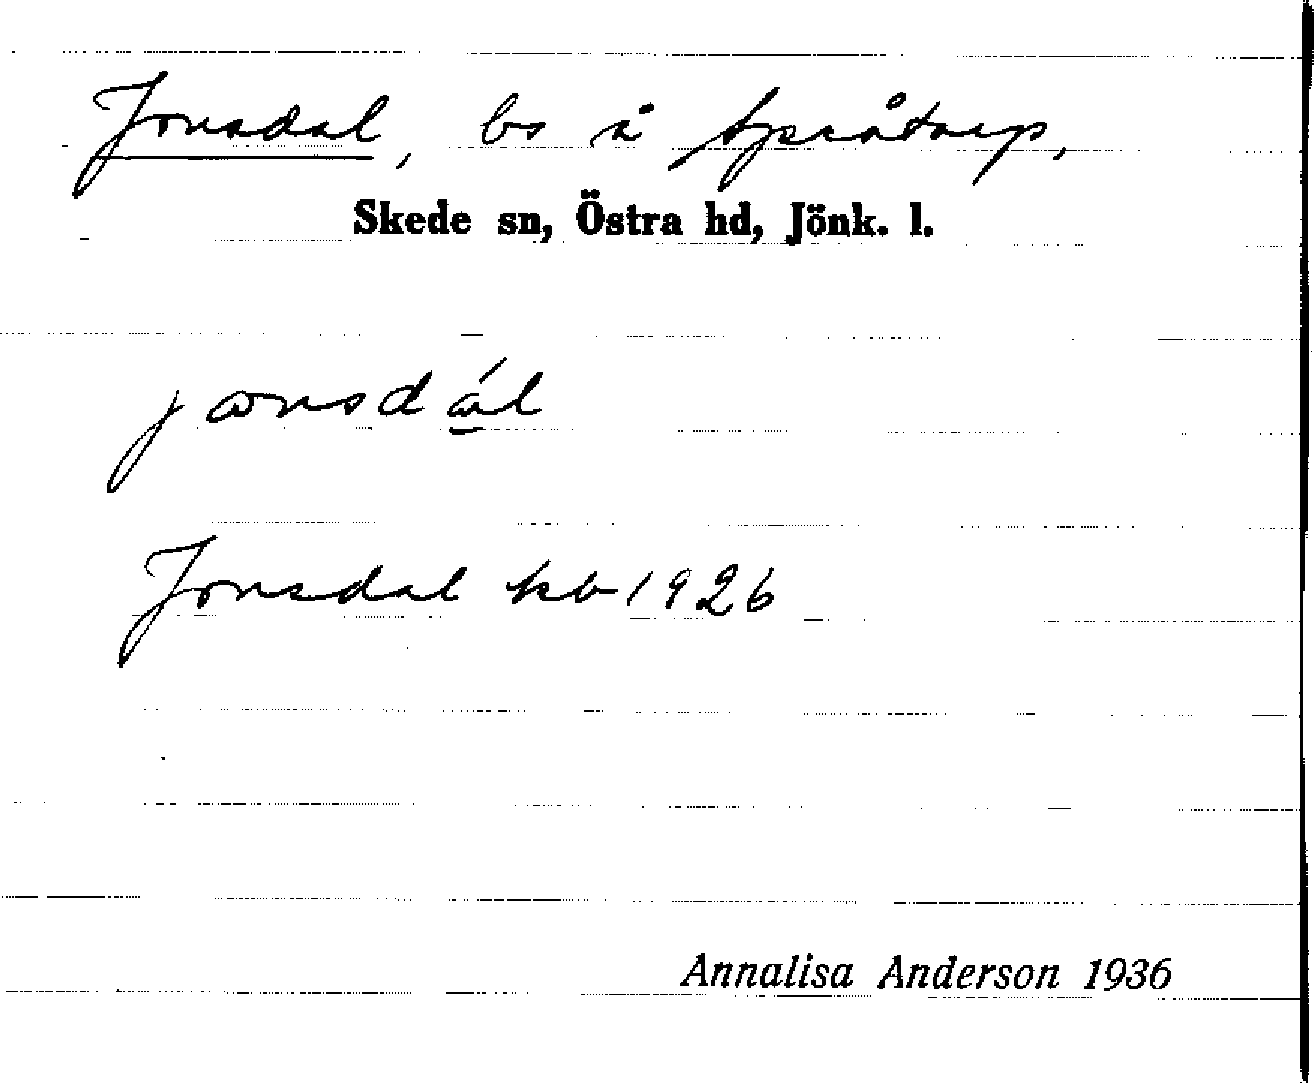 Jonsdal, bs å Språtorp,
Skede sn, Östra hd, Jönk. l.
jɷnsdál
Jonsdal kb 1926
Annalisa Anderson 1936